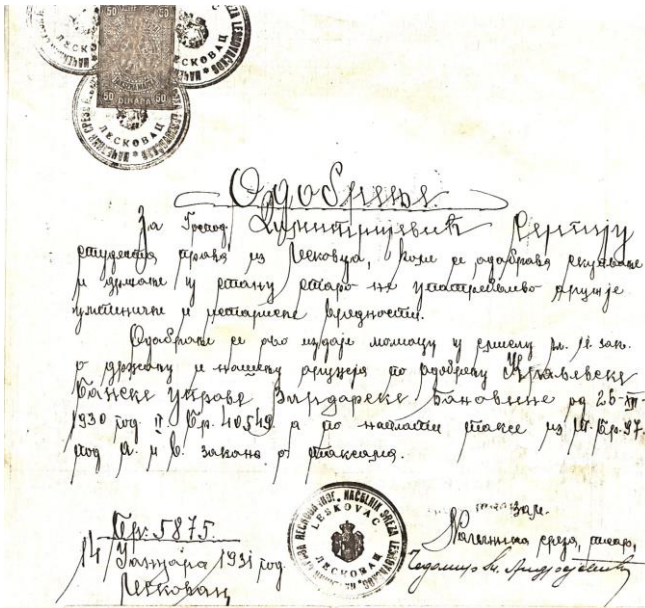 50 50
50 ДИНАРА 50
ЛЕСКОВАЦ
Одобрење
За Господ. Димитријевић Сергију
студента права из Лесковца, коме се одобрава скупљање
и држање у стану старо не употребљиво оружје
уметничке и историске вредности.
Одобрење се ово издаје молиоцу у смислу чл. 11. зак.
о држању и ношењу оружја по одобрењу Краљевске
Банске Управе Вардарске Бановине од 26-XII-
1930 год. II Бр. 40549 а по наплати таксе из Т. Бр. 97.
под а. и в. закона о таксама.
Бр. 5875
14 Јануара 1931 год.
Лесковац
LESKOVAC
ЛЕСКОВАЦ
NAČELNIK SREZA LESKOVAČKOG
зам.
Начелника среза, писар,